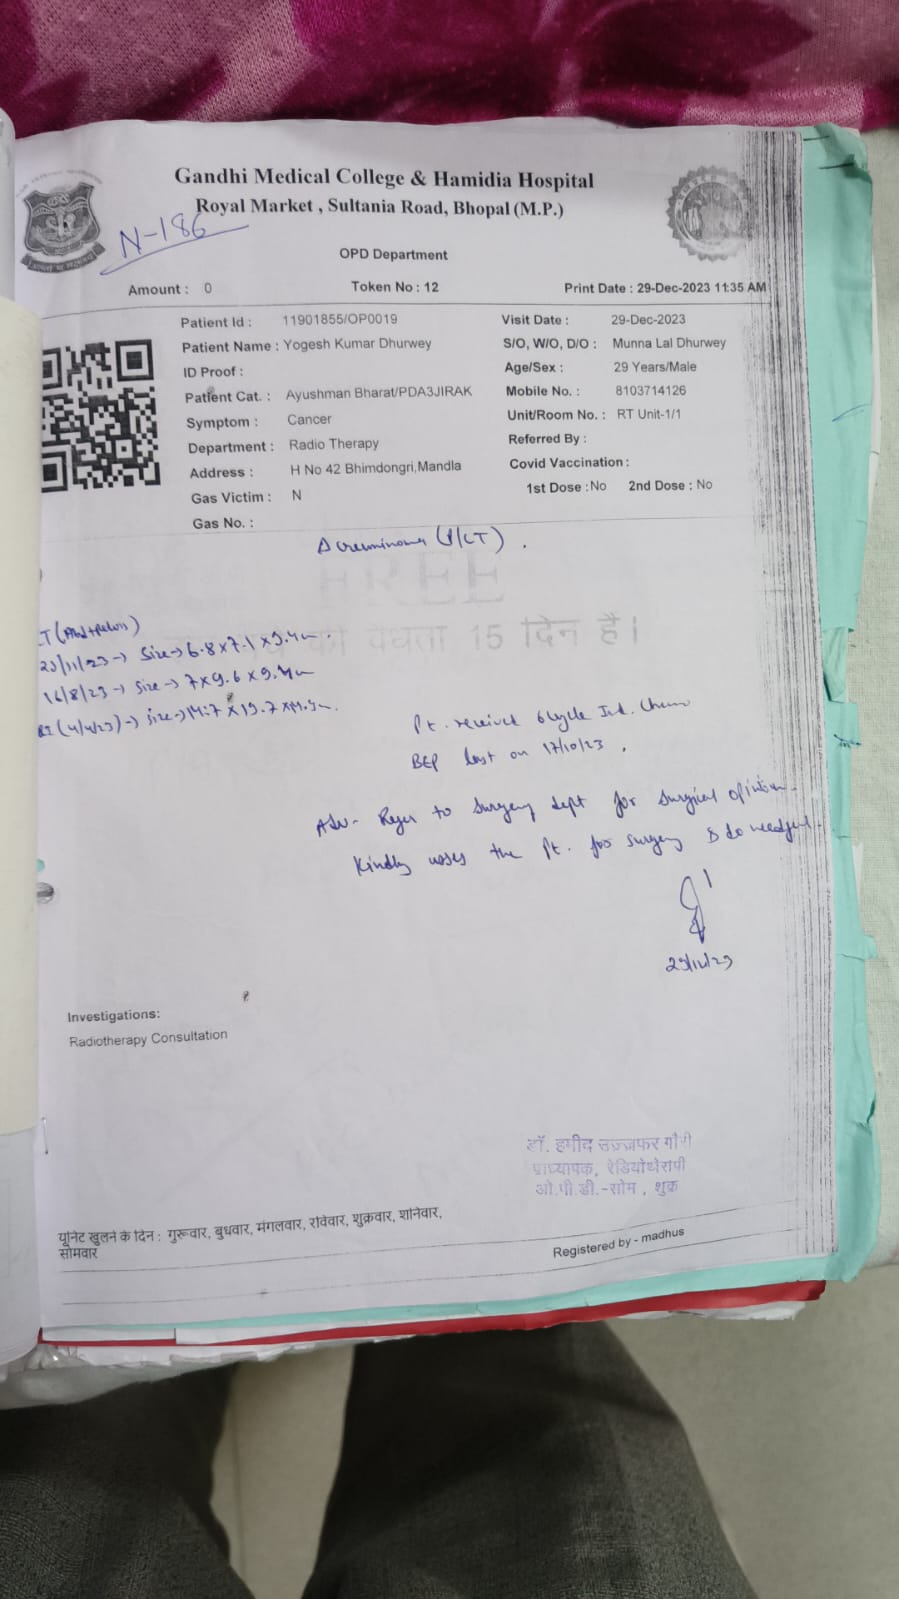 Gandhi Medical College & Hamidia Hospital
Royal Market , Sultania Road, Bhopal (M.P.)
N-186
OPD Department
Amount : 0 Token No : 12 Print Date : 29-Dec-2023 11:35 AM
Patient Id : 11901855/OP0019 Visit Date : 29-Dec-2023
Patient Name : Yogesh Kumar Dhurwey S/O, W/O, D/O : Munna Lal Dhurwey
ID Proof : Age/Sex : 29 Years/Male
Patient Cat. : Ayushman Bharat/PDA3JIRAK Mobile No. : 8103714126
Symptom : Cancer Unit/Room No. : RT Unit-1/1
Department : Radio Therapy Referred By :
Address : H No 42 Bhimdongri,Mandla Covid Vaccination :
Gas Victim : N 1st Dose :No 2nd Dose : No
Gas No. :
FREE
की वैधता 15 दिन है।
/11/23 → Size → 6.8 x 7.1 x
16/8/23 → Size → 7 x 9.6 x
(4/4/23) → Size → 14.7 x
Pt. received 6 cycle Ind. Chemo
BEP last on 17/10/23 .
Adv- Refer to Surgery dept for Surgical opinion
Kindly asses the Pt. for surgery & do needful.
Investigations:
Radiotherapy Consultation
डॉ. हमीद उज्जफर गौरी
प्राध्यापक, रेडियोथेरेपी
ओ.पी.डी.-सोम , शुक्र
यूनिट खुलने के दिन : गुरूवार, बुधवार, मंगलवार, रविवार, शुक्रवार, शनिवार,
सोमवार
Registered by - madhus